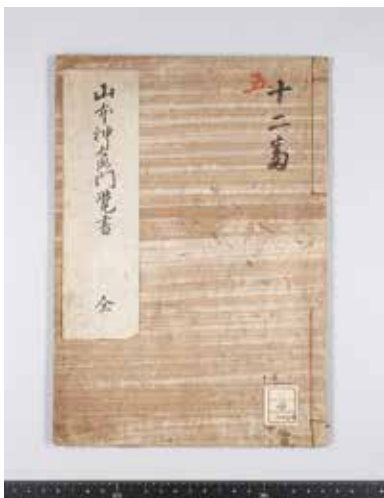 五
十二番
山本神右衛門覚書
全